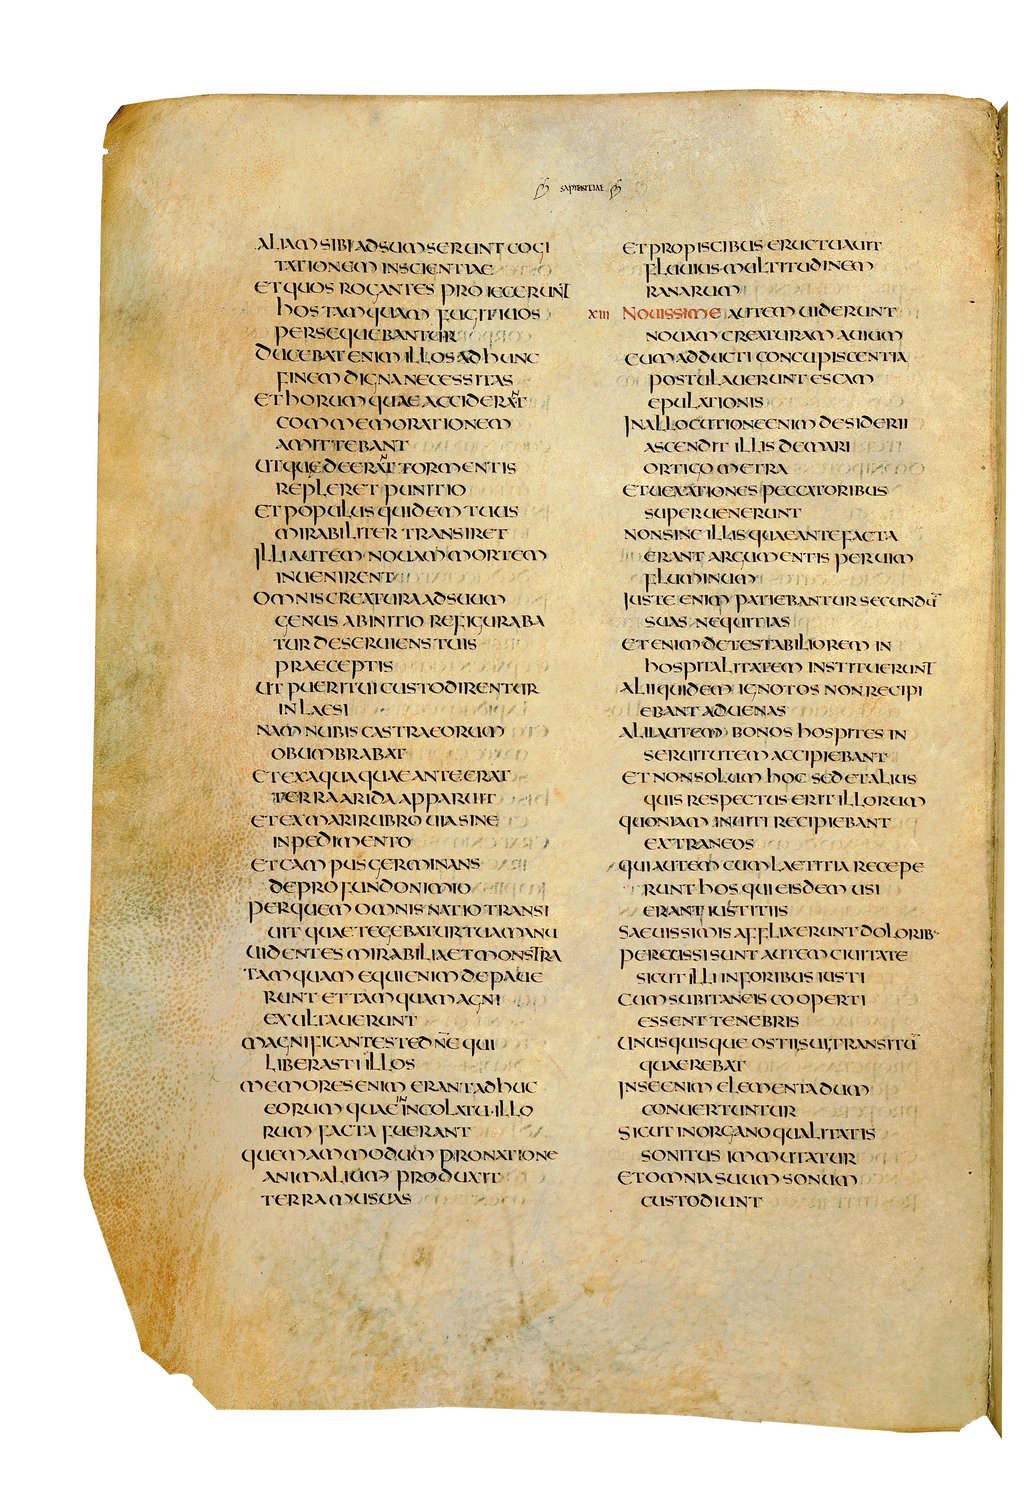 SAPIENTIAE
ALIAM SIBI ADSUMSERUNT COGI
TATIONEM INSCIENTIAE
ET QUOS ROGANTES PROIECERUNT
HOS TAMQUAM FUGITIUOS
PERSEQUEBANTUR
DUCEBAT ENIM ILLOS AD HUNC
FINEM DIGNA NECESSITAS
ET HORUM QUAE ACCIDERAT̄
COMMEMORATIONEM
AMITTEBANT
UT QUE DEERAT̄ TORMENTIS
REPLERET PUNITIO
ET POPULUS QUIDEM TUUS
MIRABILITER TRANSIRET
ILLI AUTEM NOUAM MORTEM
INUENIRENT
OMNIS CREATURA AD SUUM
GENUS AB INITIO REFIGURABA
TUR DESERUIENS TUIS
PRAECEPTIS
UT PUERI TUI CUSTODIRENTUR
INLAESI
NAM NUBIS CASTRA EORUM
OBUMBRABAT
ET EX AQUA QUAE ANTE ERAT
TERRA ARIDA APPARUIT
ET EX MARI RUBRO UIA SINE
INPEDIMENTO
ET CAMPUS GERMINANS
DE PROFUNDO NIMIO
PER QUEM OMNIS NATIO TRANSI
UIT QUAE TEGEBATUR TUA MANU
UIDENTES MIRABILIA ET MONSTRA
TAMQUAM EQUI ENIM DEPAUE
RUNT ET TAMQUAM AGNI
EXULTAUERUNT
MAGNIFICANTES TE DN̄E QUI
LIBERASTI ILLOS
MEMORES ENIM ERANT ADHUC
EORUM QUAE IN INCOLATU ILLO
RUM FACTA FUERANT
QUEMAMMODUM PRO NATIONE
ANIMALIUM PRODUXIT
TERRA MUSCAS
ET PRO PISCIBUS ERUCTUAUIT
FLUUIUS MULTITUDINEM
RANARUM
XIII NOUISSIME AUTEM UIDERUNT
NOUAM CREATURAM AUIUM
CUM ADDUCTI CONCUPISCENTIA
POSTULAUERUNT ESCAM
EPULATIONIS
IN ALLOCUTIONE ENIM DESIDERII
ASCENDIT ILLIS DE MARI
ORTIGOMETRA
ET UEXATIONES PECCATORIBUS
SUPERUENERUNT
NON SINE ILLIS QUAE ANTE FACTA
ERANT ARGUMENTIS PER UIM
FLUMINUM
IUSTE ENIM PATIEBANTUR SECUNDŪ
SUAS NEQUITIAS
ETENIM DETESTABILIOREM IN
HOSPITALITATEM INSTITUERUNT
ALII QUIDEM IGNOTOS NON RECIPI
EBANT ADUENAS
ALII AUTEM BONOS HOSPITES IN
SERUITUTEM ACCIPIEBANT
ET NON SOLUM HOC SED ET ALIUS
QUIS RESPECTUS ERIT ILLORUM
QUONIAM INUITI RECIPIEBANT
EXTRANEOS
QUI AUTEM CUM LAETITIA RECEPE
RUNT HOS QUI EISDEM USI
ERANT IUSTITIIS
SAEUISSIMIS AFFLIXERUNT DOLORIB·
PERCUSSI SUNT AUTEM CIUITATE
SICUT ILLI IN FORIBUS IUSTI
CUM SUBITANEIS COOPERTI
ESSENT TENEBRIS
UNUSQUISQUE OSTII SUI TRANSITŪ
QUAEREBAT
IN SE ENIM ELEMENTA DUM
CONUERTUNTUR
SICUT IN ORGANO QUALITATIS
SONITUS IMMUTATUR
ET OMNIA SUUM SONUM
CUSTODIUNT